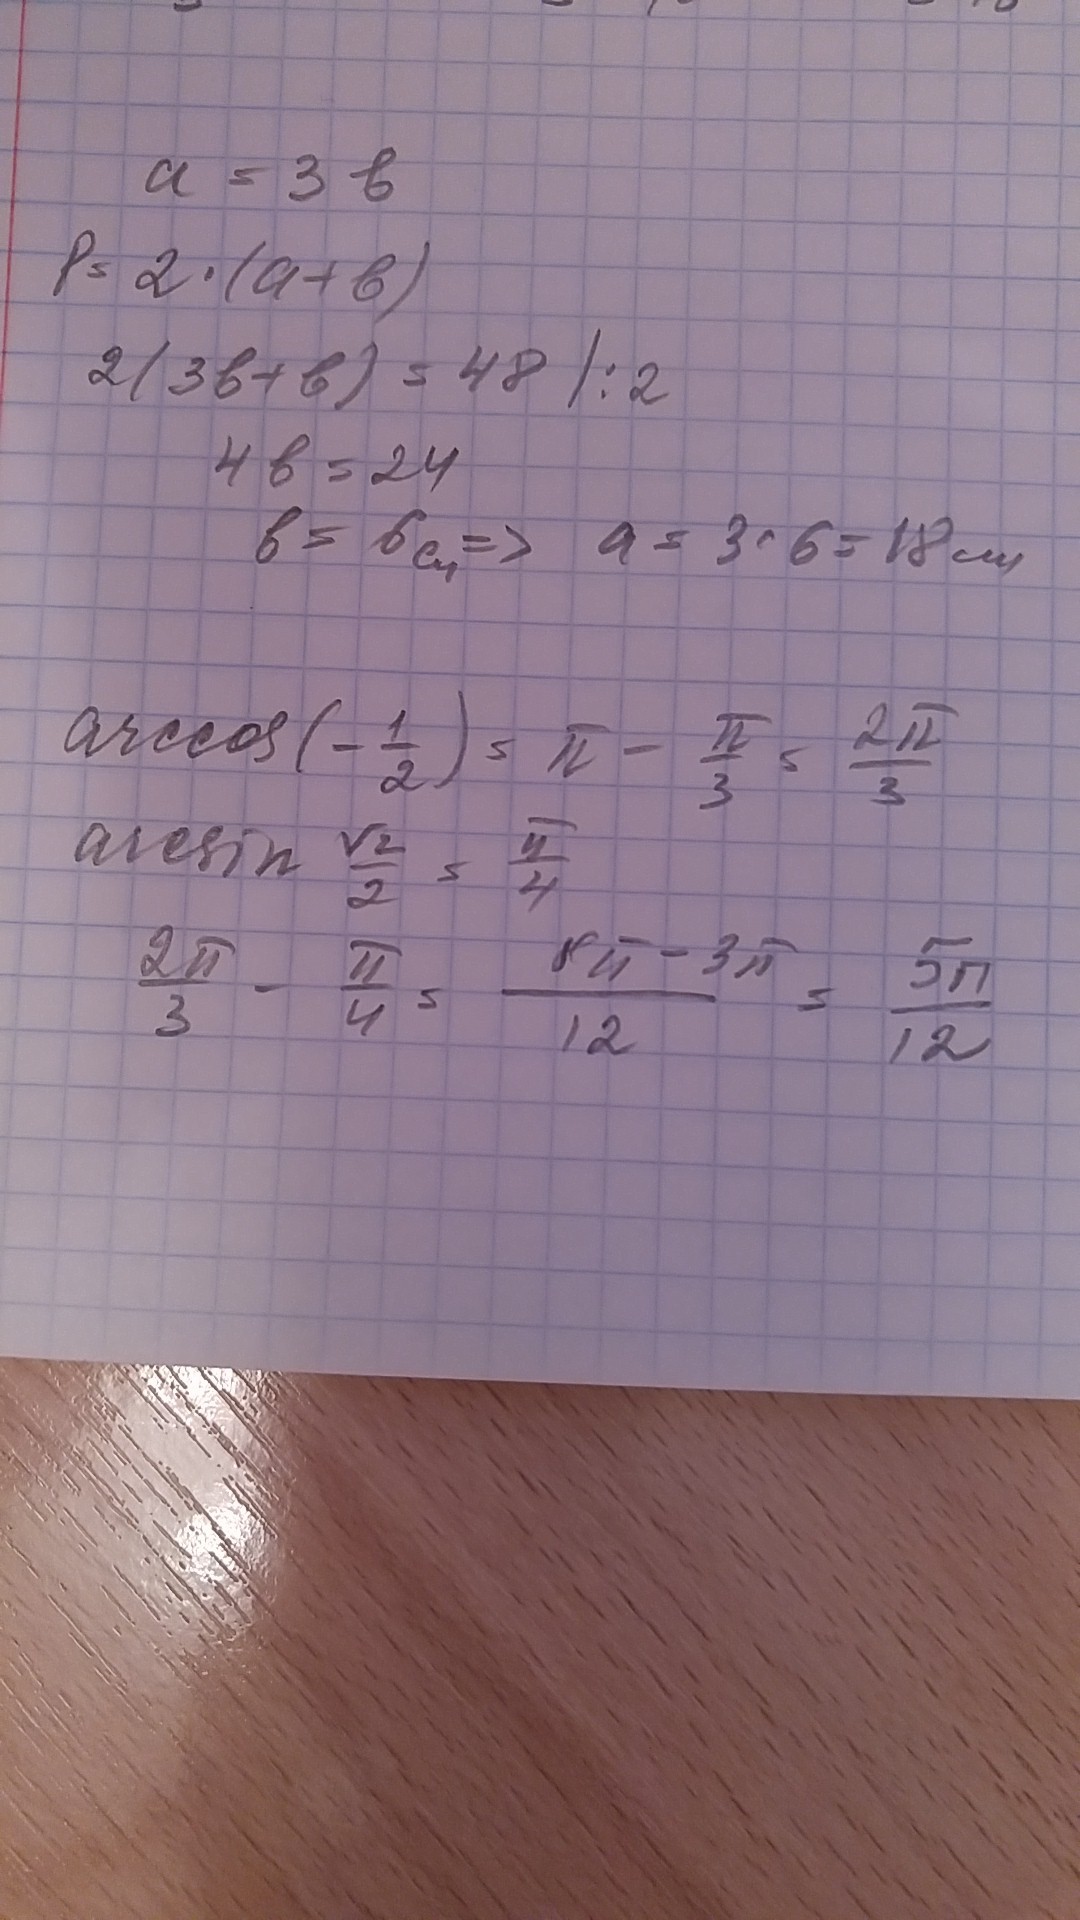 a = 3 в
P = 2 · (a + в)
2(3в + в) = 48 | : 2
4 в = 24
в = 6 см => a = 3 · 6 = 18 см
arccos(-1/2) = π - π/3 = 2π/3
arcsin √2/2 = π/4
2π/3 - π/4 = 8π - 3π/12 = 5π/12